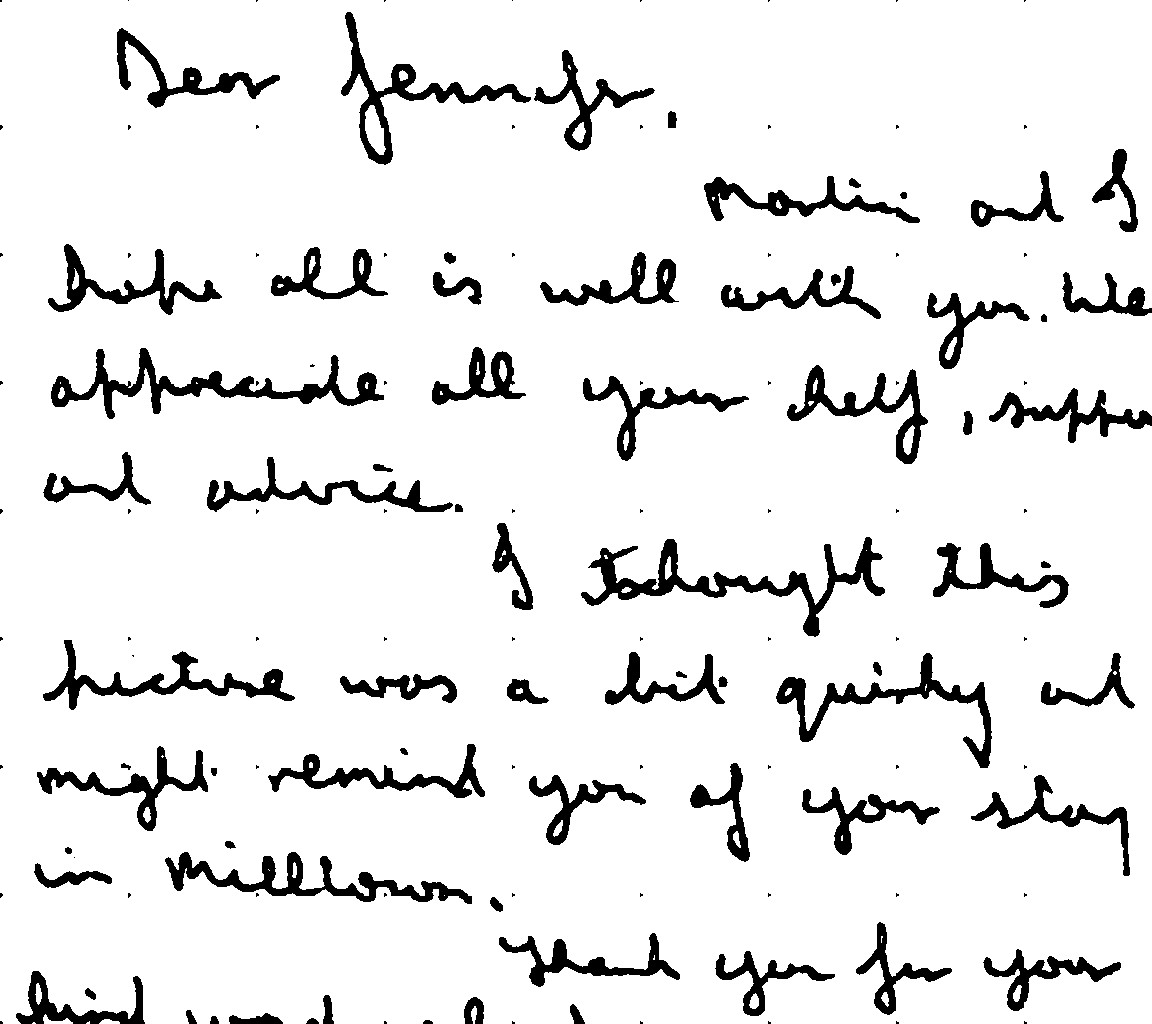 Dear Jennifer,
Martin and I
hope all is well with you. We
appreciate all your help, suppo
and advice.
I thought this
picture was a bit quirky and
might remind you of your stay
in Milltown.
Thank you for your
kind words